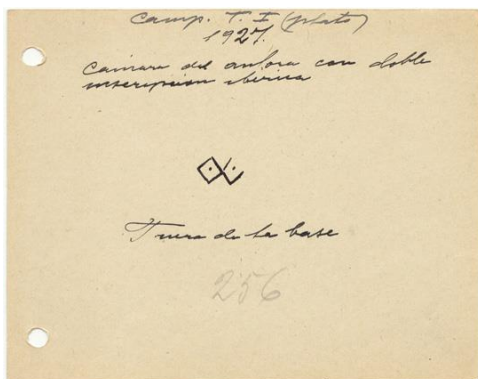 Camp. T. I (plato)
1927.
Camara del anfora con doble
inscripcion iberica
Fuera de la base
256